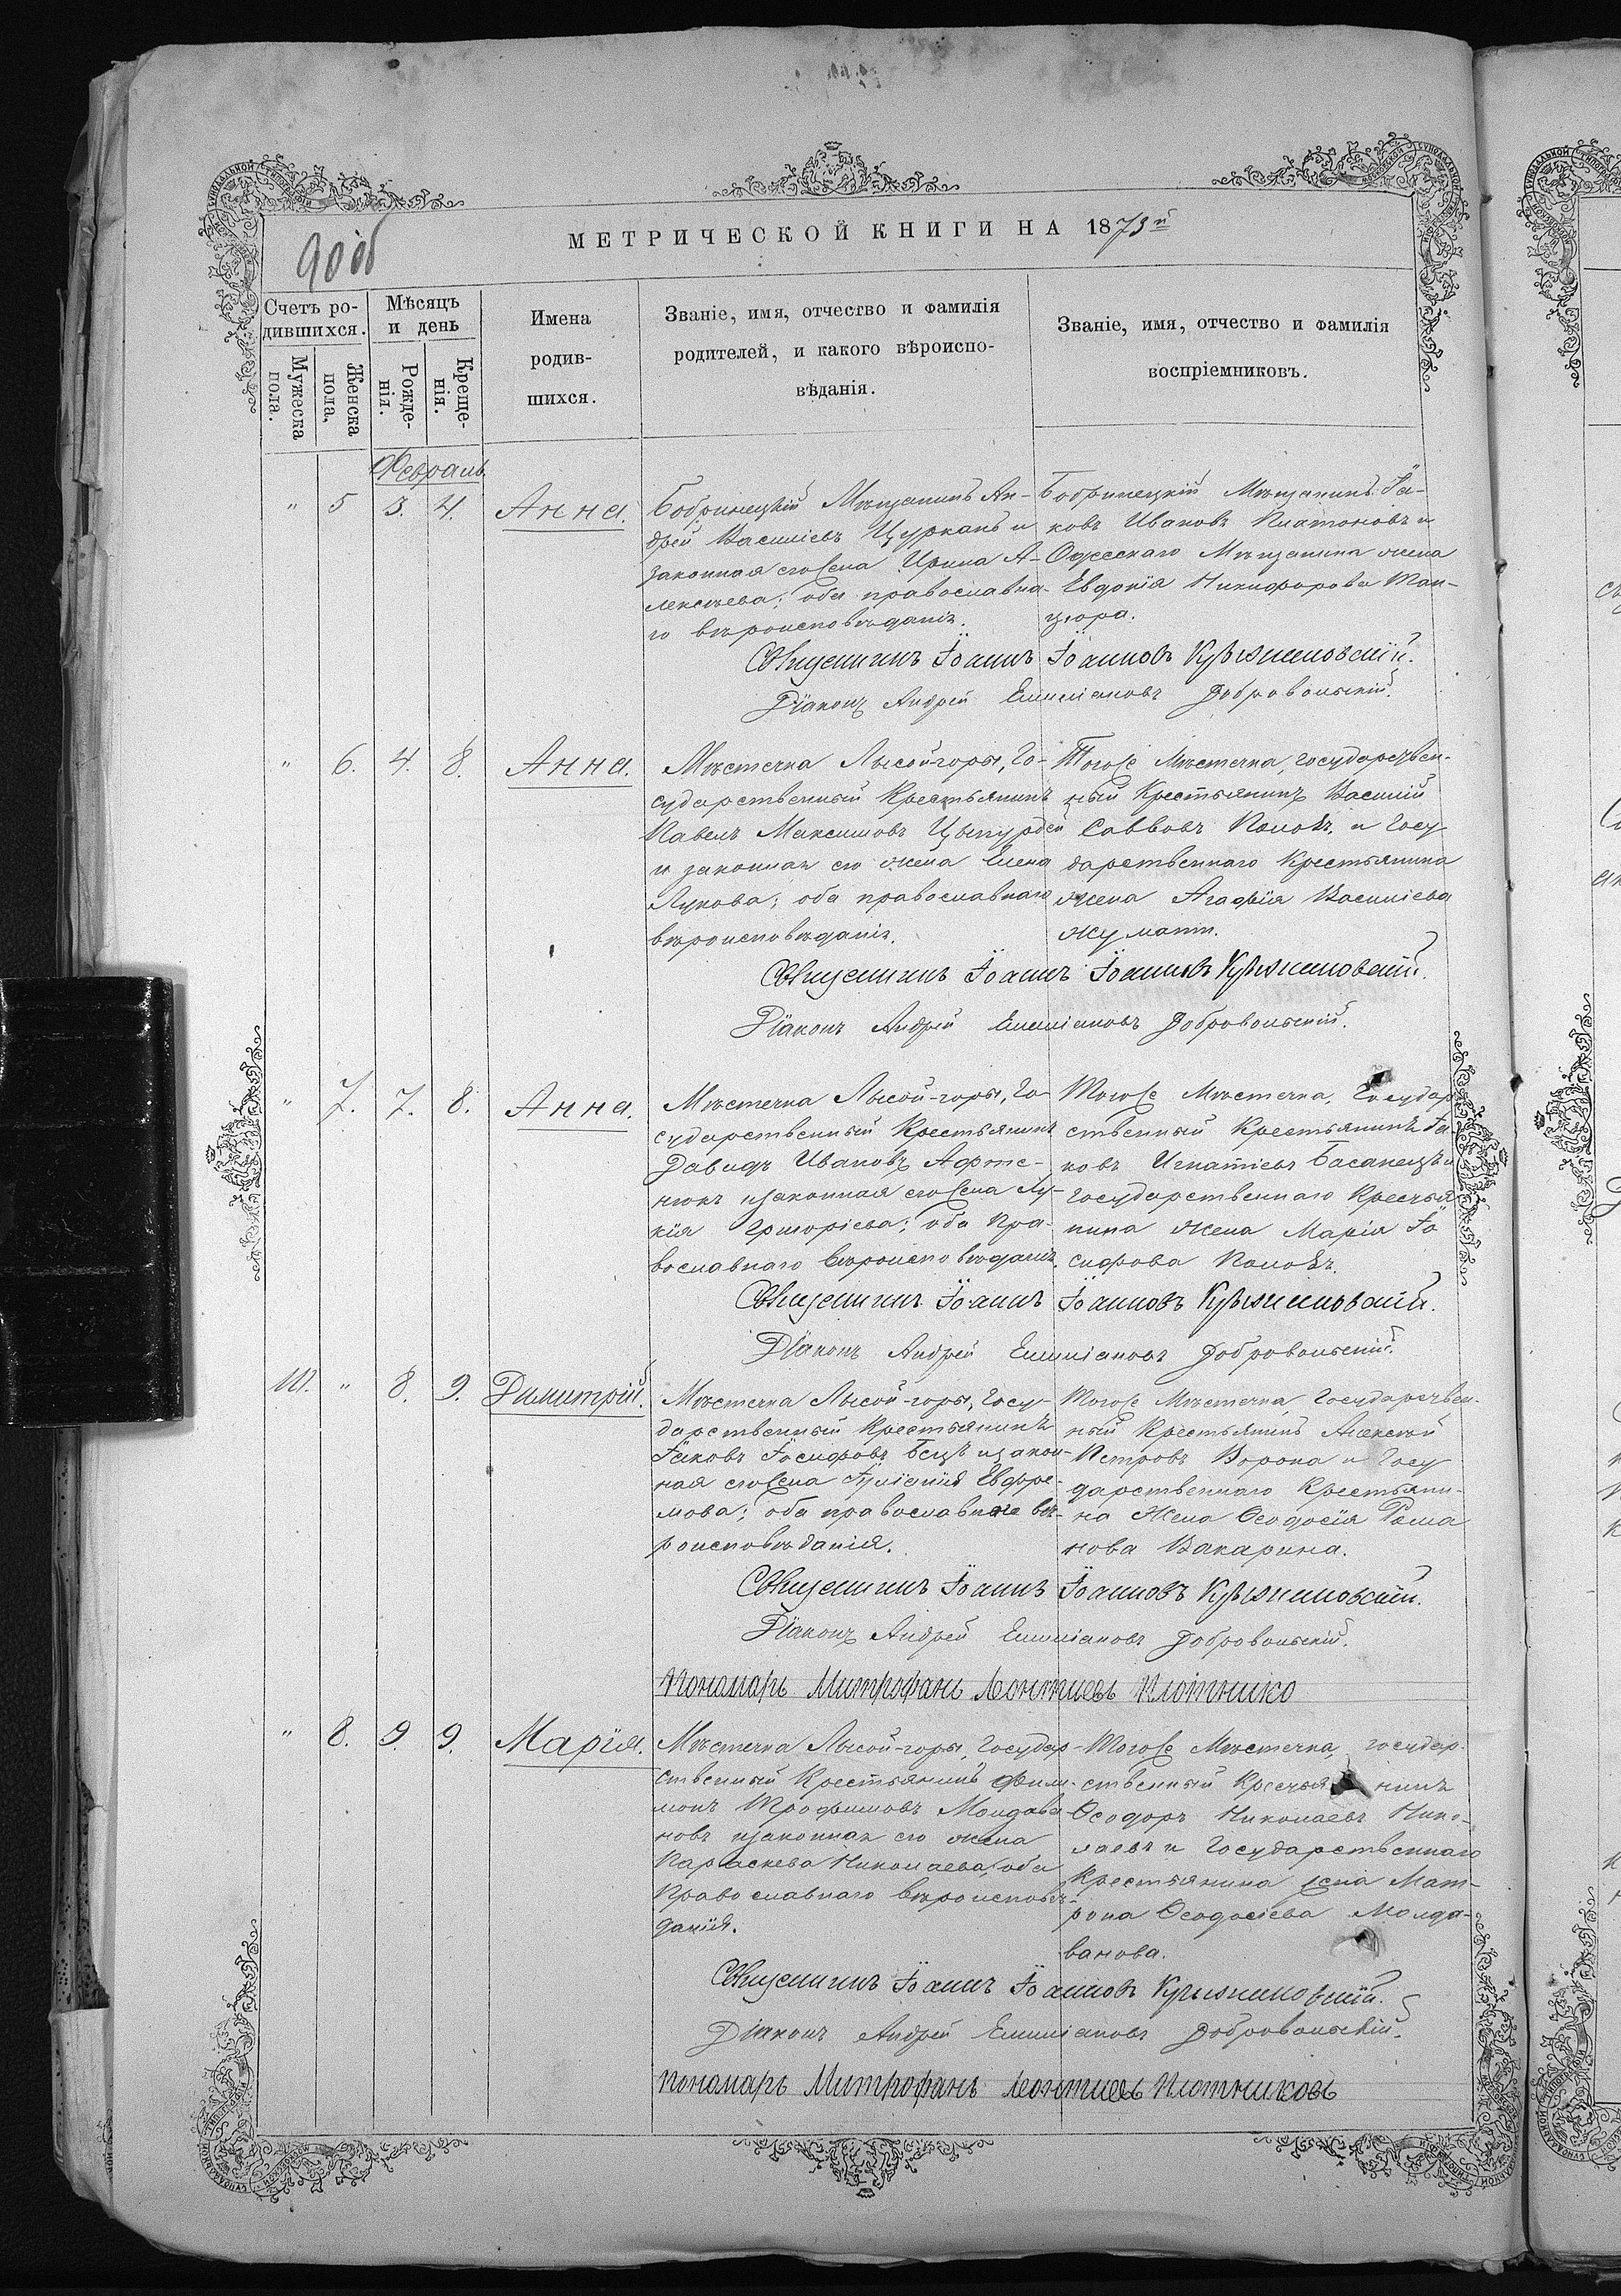 90 об
МЕТРИЧЕСКОЙ КНИГИ НА 1873й
Счетъ ро-
дившихся.
Мужеска
пола.
Женска
пола.
Мѣсяцъ
и день
Рожде-
нія.
Креще-
нія.
Имена
родив-
шихся.
Званіе, имя, отчество и фамилія
родителей, и какого вѣроиспо-
вѣданія.
Званіе, имя, отчество и фамилія
воспріемниковъ.
Февраль
" 5 3. 4. Анна.
Бобринецкій Мѣщанинъ Ан-
дрей Василіевъ Цурканъ и
законная его жена Ирина А-
лексѣева; оба православна-
го вѣроисповѣданія.
Бобринецкій Мѣщанинъ Іа-
ковъ Ивановъ Платоновъ и
Одесскаго Мѣщанина жена
Евдокія Никифорова Ман-
зюра.
Священникъ Іоаннъ Іоанновъ Крыжановскій.
Діаконъ Андрей Емиліановъ Добровольскій.
" 6. 4. 8. Анна.
Мѣстечка Лысой-горы, Го-
сударственный Крестьянинъ
Павелъ Максимовъ Цыпурдей
и законная его жена Елена
Лукова; оба православнаго
вѣроисповѣданія.
Тогоже Мѣстечка, государствен-
ный Крестьянинъ Василій
Саввовъ Поповъ, и Госу
дарственнаго Крестьянина
жена Агафія Василіева
Жумати.
Священникъ Іоаннъ Іоанновъ Крыжановскій.
Діаконъ Андрей Емиліановъ Добровольскій.
" 7. 7. 8. Анна.
Мѣстечка Лысой-горы, Го-
сударственный Крестьянинъ
Давидъ Ивановъ Афте-
нюкъ и законная его жена Лу-
кія Григоріева; оба пра-
вославнаго вѣроисповѣданія.
Тогоже Мѣстечка, Государ
ственный Крестьянинъ Іа
ковъ Игнатіевъ и
государственнаго Крестья
нина жена Марія Іо
сифова Поповъ.
Священникъ Іоаннъ Іоанновъ Крыжановскій.
Діаконъ Андрей Емиліановъ Добровольскій.
10. " 8. 9. Димитрій.
Мѣстечка Лысой-горы, Госу-
дарственный Крестьянинъ
Іаковъ Іосифовъ и закон-
ная его жена Іуліанія Ефре-
мова; оба православнаго вѣ-
роисповѣданія.
Тогоже Мѣстечка, Государствен-
ный Крестьянинъ Алексѣй
Петровъ Ворона и Госу
дарственнаго Крестьяни-
на Жена Ѳеодосія Рома
нова Вакарина.
Священникъ Іоаннъ Іоанновъ Крыжановскій.
Діаконъ Андрей Емиліановъ Добровольскій.
Пономарь Митрофанъ Леонтиевъ Плотнико
" 8. 9. 9. Марія.
Мѣстечка Лысой-горы, Государ-
ственный Крестьянинъ Фили-
монъ Трофимовъ Молдова-
новъ и законная его жена
Параскева Николаева; оба
Православнаго вѣроисповѣ-
данія.
Тогоже Мѣстечка, государ-
ственный Крестьянинъ
Ѳеодоръ Николаевъ Нико-
лаевъ и Государственнаго
Крестьянина жена Мат-
рона Ѳеодосіева Молда-
ванова.
Священникъ Іоаннъ Іоанновъ Крыжановскій.
Діаконъ Андрей Емиліановъ Добровольскій.
Пономарь Митрофанъ Леонтиевъ Плотниковъ